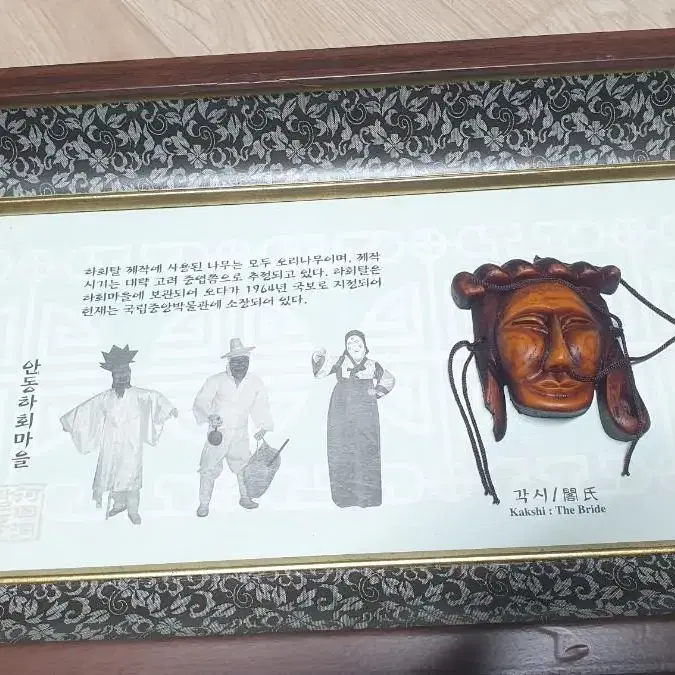 하회탈 제작에 사용된 나무는 모두 오리나무이며, 제작
시기는 대략 고려 중엽쯤으로 추정되고 있다. 하회탈은
하회마을에 보관되어 오다가 1964년 국보로 지정되어
현재는 국립중앙박물관에 소장되어 있다.
안동하회마을
각시/閣氏
Kakshi : The Bride